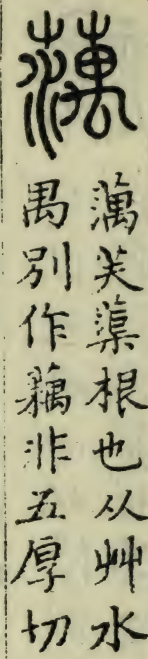 蕅
蕅芙蕖根也从艸水
禺別作藕非五厚切